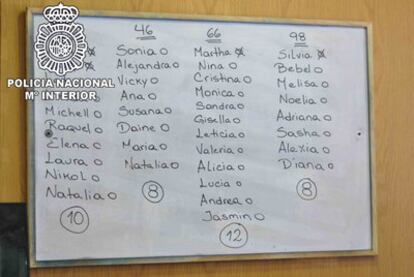 46
66
98
Sonia o
Alejandra o
Vicky o
Ana o
Susana o
Daine o
Maria o
Natalia o
8
Martha
Nina o
Cristina o
Monica o
Sandra o
Gisella o
Leticia o
Valeria o
Alicia o
Lucia o
Andrea o
Jasmin o
12
Silvia
Bebel o
Melisa o
Noelia o
Adriana o
Sasha o
Alexia o
Diana o
8
POLICIA NACIONAL
Mº INTERIOR
Michell o
Raquel o
Elena o
Laura o
Nikol o
Natalia o
10